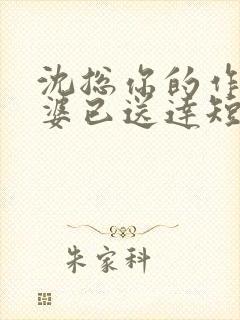 沈总你的作
婆已送达短
朱家科